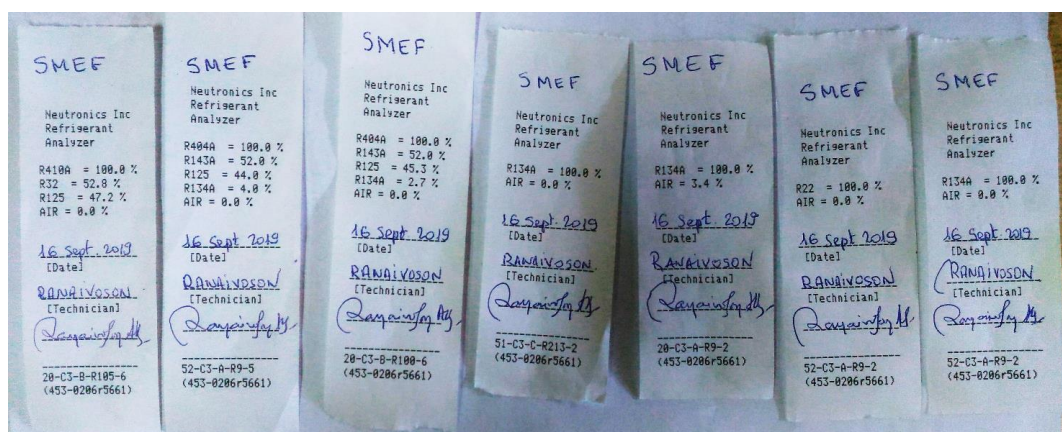 SMEF
Neutronics Inc
Refrigerant
Analyzer
R410A = 100.0 %
R32 = 52.8 %
R125 = 47.2 %
AIR = 0.0 %
16 Sept. 2019
[Date]
RANAIVOSON
[Technician]
20-C3-B-R105-6
(453-0206r5661)
SMEF
Neutronics Inc
Refrigerant
Analyzer
R404A = 100.0 %
R143A = 52.0 %
R125 = 44.0 %
R134A = 4.0 %
AIR = 0.0 %
16 Sept. 2019
[Date]
RANAIVOSON
[Technician]
52-C3-A-R9-5
(453-0206r5661)
SMEF
Neutronics Inc
Refrigerant
Analyzer
R404A = 100.0 %
R143A = 52.0 %
R125 = 45.3 %
R134A = 2.7 %
AIR = 0.0 %
16 Sept. 2019
[Date]
RANAIVOSON
[Technician]
20-C3-B-R100-6
(453-0206r5661)
SMEF
Neutronics Inc
Refrigerant
Analyzer
R134A = 100.0 %
AIR = 0.0 %
16 Sept. 2019
[Date]
RANAIVOSON
[Technician]
51-C3-C-R213-2
(453-0206r5661)
SMEF
Neutronics Inc
Refrigerant
Analyzer
R134A = 100.0 %
AIR = 3.4 %
16 Sept. 2019
[Date]
RANAIVOSON
[Technician]
20-C3-A-R9-2
(453-0206r5661)
SMEF
Neutronics Inc
Refrigerant
Analyzer
R22 = 100.0 %
AIR = 0.0 %
16 Sept 2019
[Date]
RANAIVOSON
[Technician]
52-C3-A-R9-2
(453-0206r5661)
SMEF
Neutronics Inc
Refrigerant
Analyzer
R134A = 100.0 %
AIR = 0.0 %
16 Sept. 2019
[Date]
RANAIVOSON
[Technician]
52-C3-A-R9-2
(453-0206r5661)